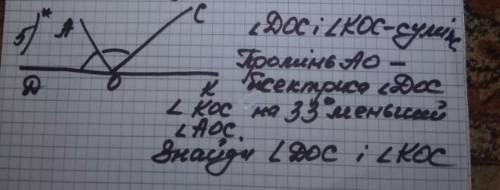 5)*
A
C
D
O
K
∠DOC і ∠KOC - суміж
Промінь AO -
бісектриса ∠DOC
∠KOC на 33° меньший
∠AOC.
Знайди ∠DOC і ∠KOC